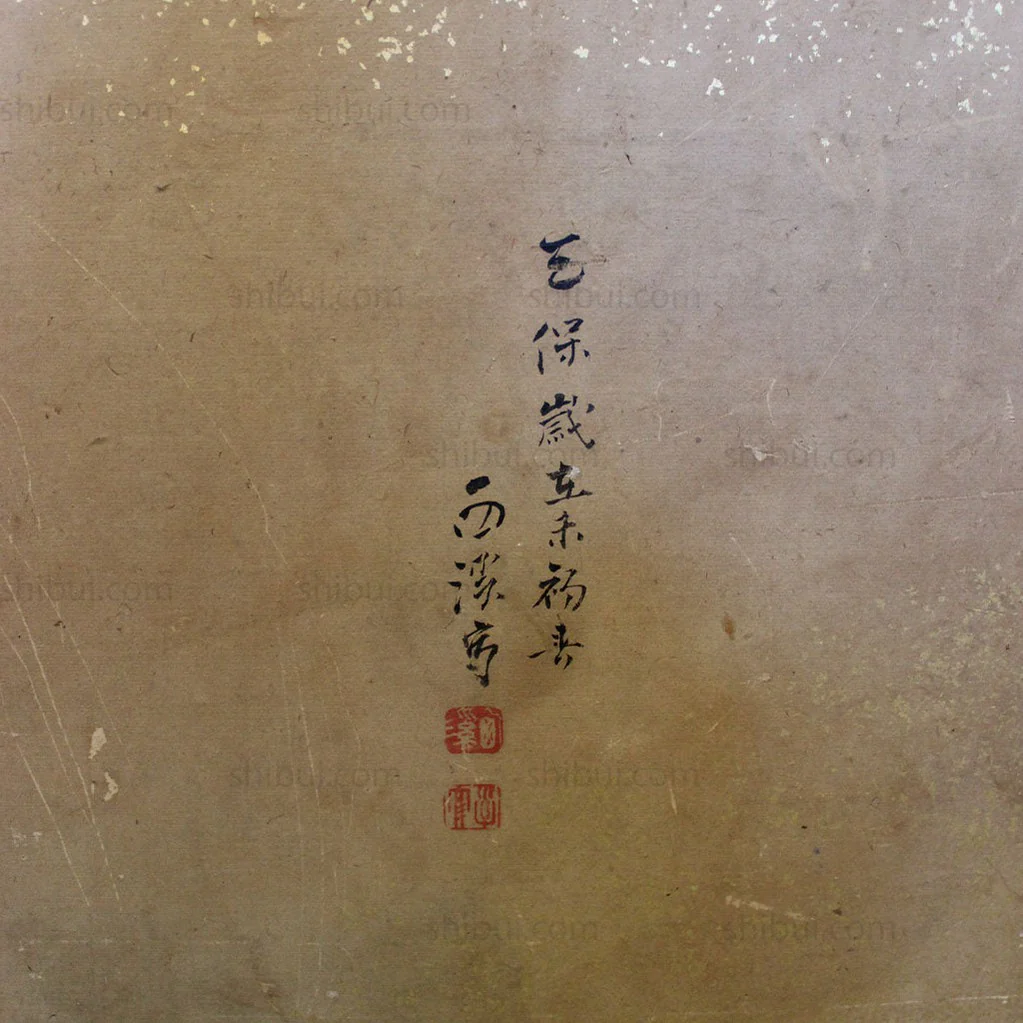 天保歳在未初春
西溪寫
西溪
shibui.com shibui.com
shibui.com shibui.com
shibui.com shibui.com
shibui.com shibui.com
shibui.com shibui.com
shibui.com shibui.com